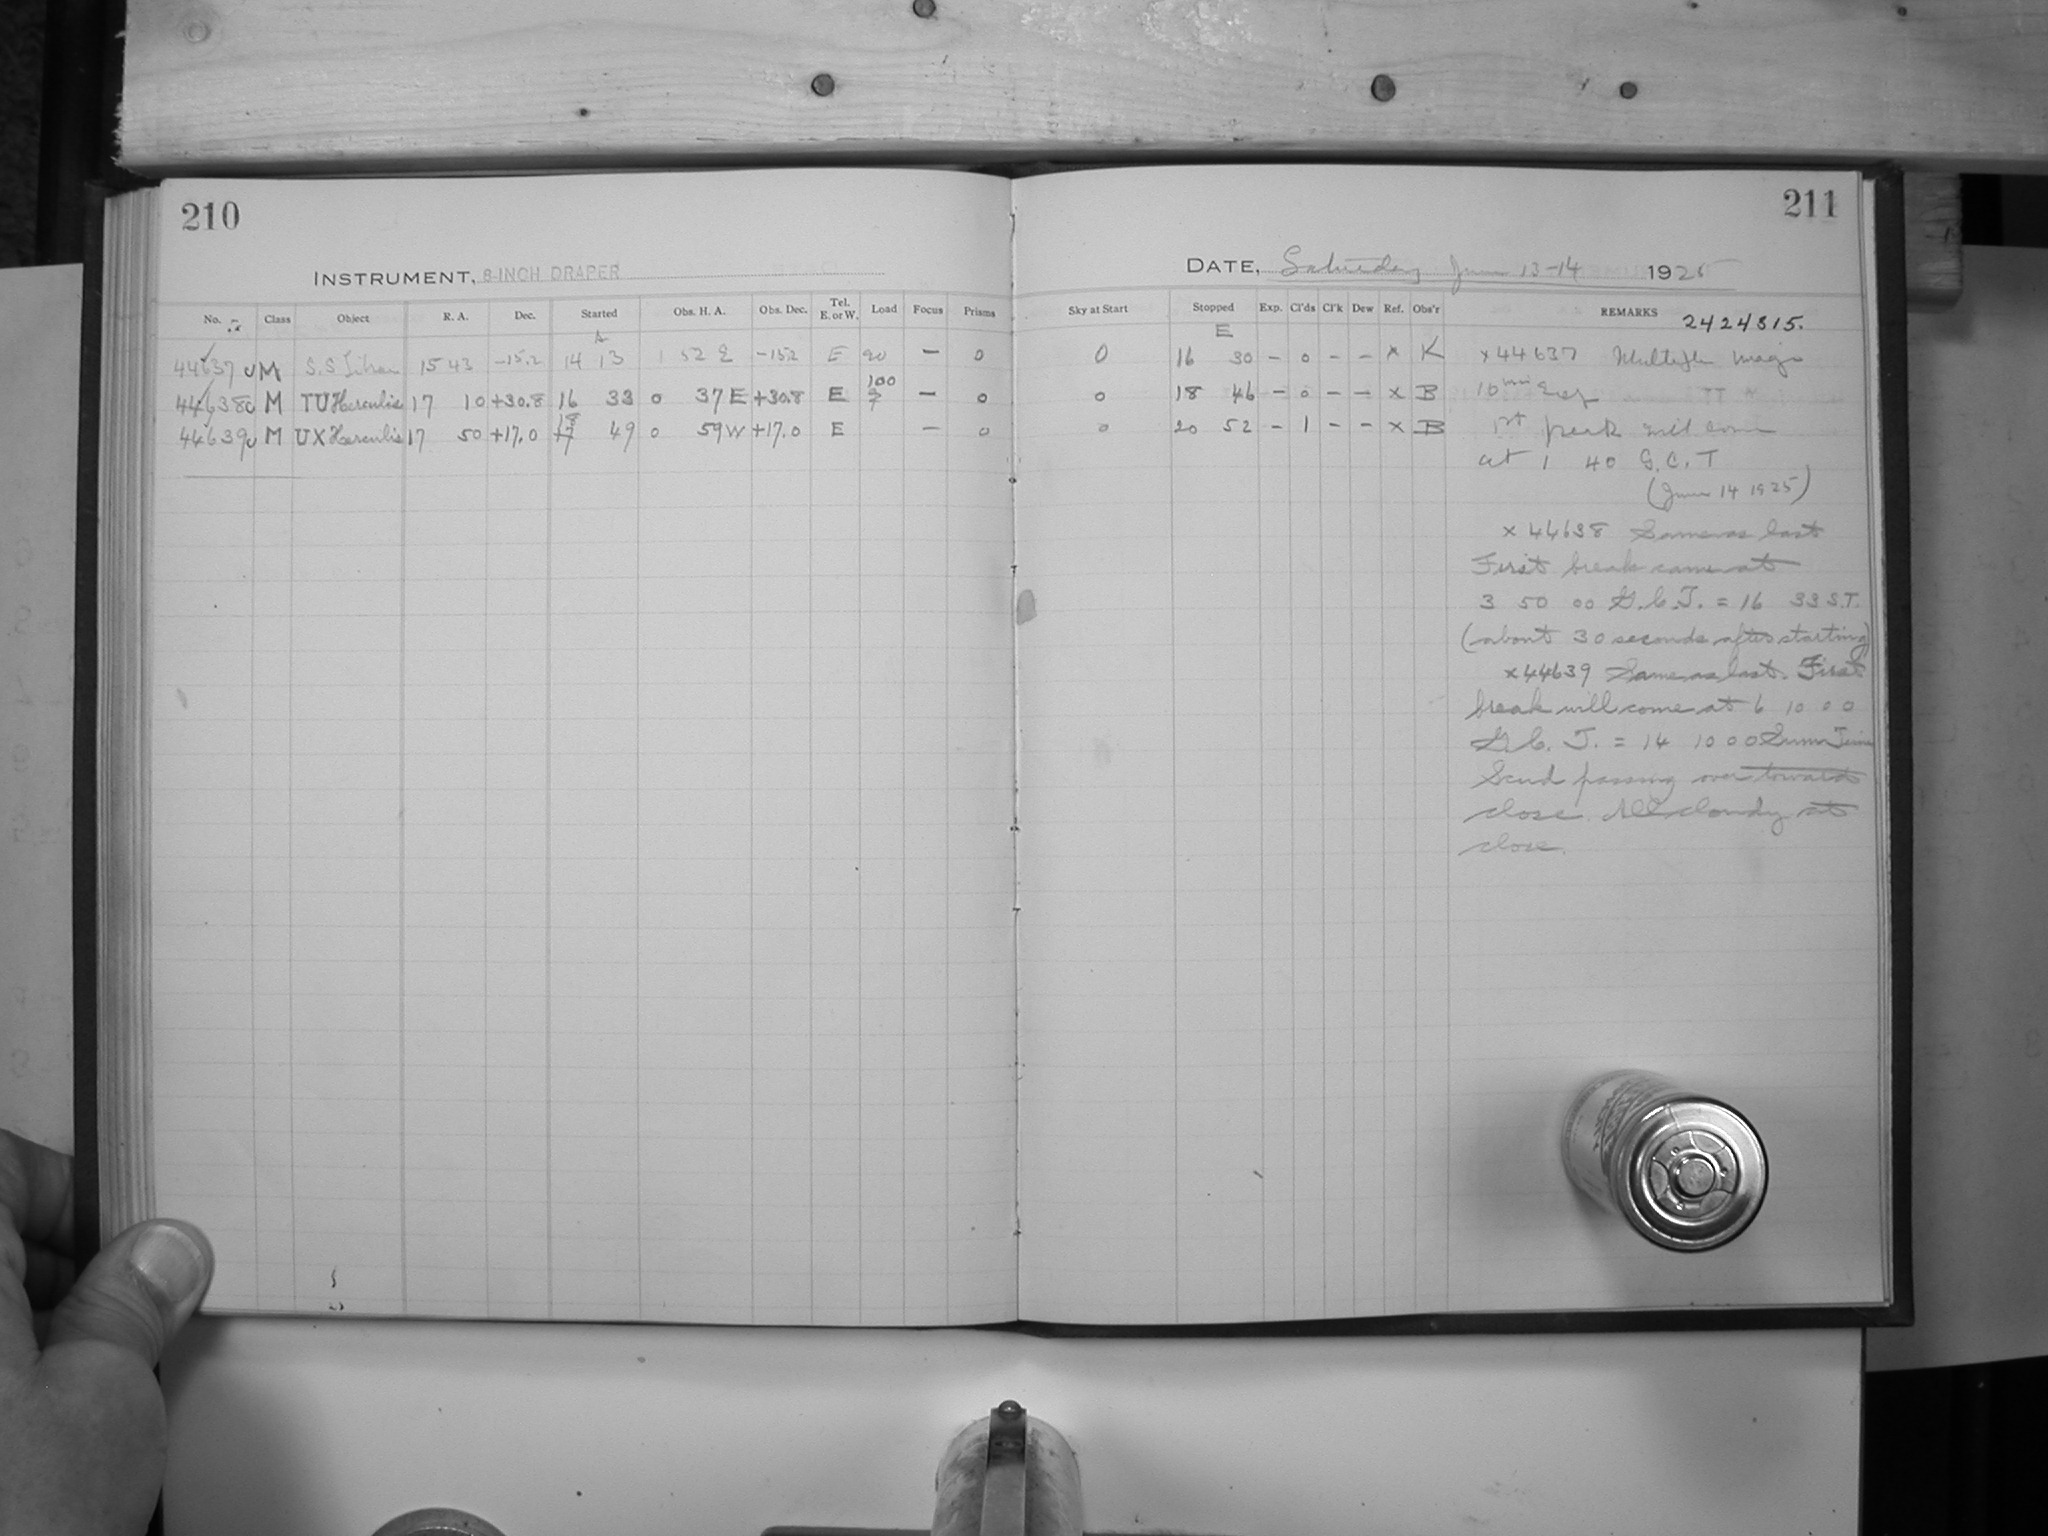 210
211
INSTRUMENT, 8-INCH DRAPER
DATE, Saturday June 13-14 1925
No. Class Object R. A. Dec. Started Obs. H. A. Obs. Dec. Tel. E. or W. Load Focus Prisms Sky at Start Stopped Exp. Cl'ds Cl'k Dew Ref. Obs'r REMARKS 2424315.
A E
44637 M S.S Librae 15 43 -15.2 14 13 1 52 E -15.2 E 90 – 0 0 16 30 – 0 – – x K x 44637 Multiple Image
44638 M TU Herculis 17 10 +30.8 16 33 0 37 E +30.8 E 100 – 0 0 18 46 – 0 – – x B 10 min Exp
44639 M UX Herculis 17 50 +17.0 18 49 0 59 W +17.0 E – 0 0 20 52 – 1 – – x B 1st break will come
at 1 40 G.C.T
(June 14 1925)
x 44638 Same as last
First break came at
3 50 00 G.C.T. = 16 33 S.T.
(about 30 seconds after starting)
x 44639 Same as last. First
break will come at 6 10 00
G.C.T. = 14 10 00 Summ Time
Scud passing over towards
close. All cloudy at
close.